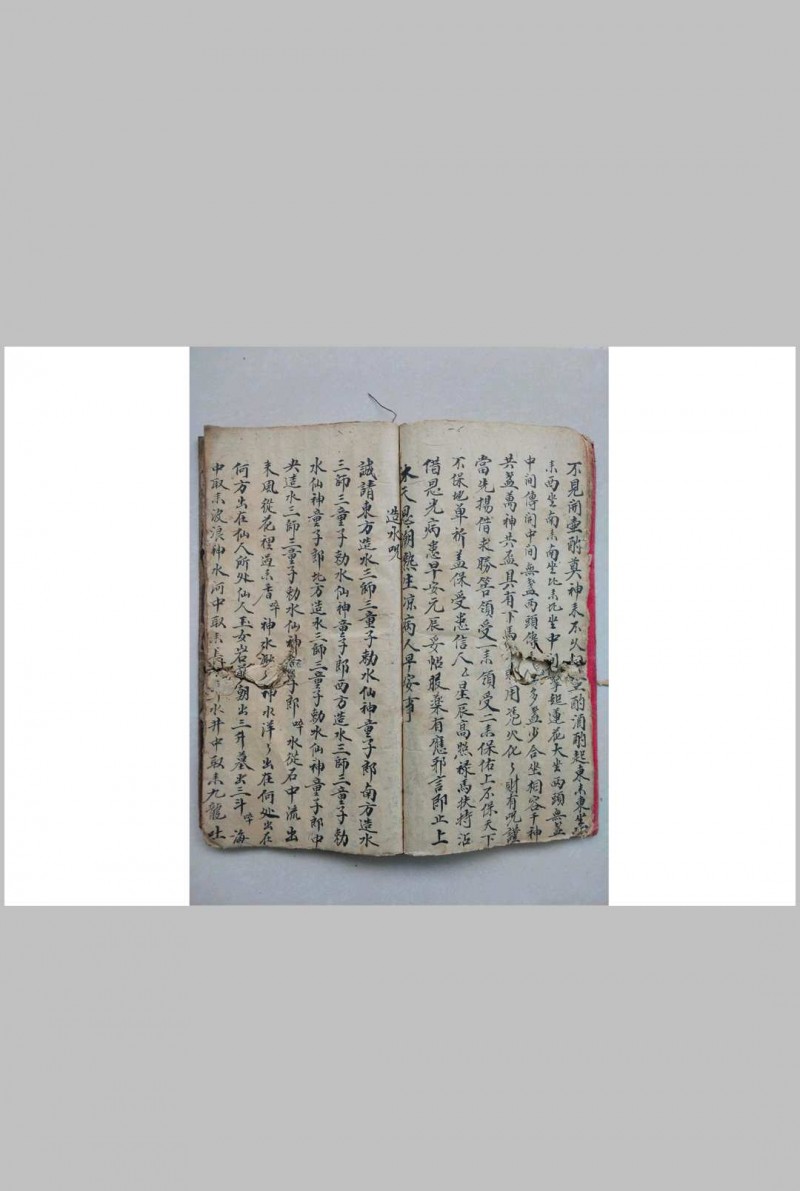 不見開壺酌真神未不火壺酌酒酌起東未東坐
未西坐南未南坐北未北坐中起蓮花大坐兩頭無盆
中間傳開中間無盞兩頭多盞少合坐相容千神
共盞萬神共盃具有下馬用凭火化々財有咒謹
當先揚借求勝筶領受一未領受二未保佑上不保天下
不保地單祈盖保受患信人々星辰高照祿馬扶持沾
借恩光病患早安元辰妥帖服藥有應邪言即止上
水天退熱生凉病人早安亨
造水咒
誠請東方造水三師三童子勅水仙神童子郎南方造水
三師三童子勅水仙神童子郎西方造水三師三童子勅
水仙神童子郎北方造水三師三童子勅水仙神童子郎中
央造水三師三童子勅水仙神童子郎吽水從石中流出
來風從花裡過未香吽神水神水洋々出在何処出在
何方出在仙人所処仙人玉女岩前劍出三井墓出三斗吽海
中取未波浪神水河中取未水井中取未九龍吐